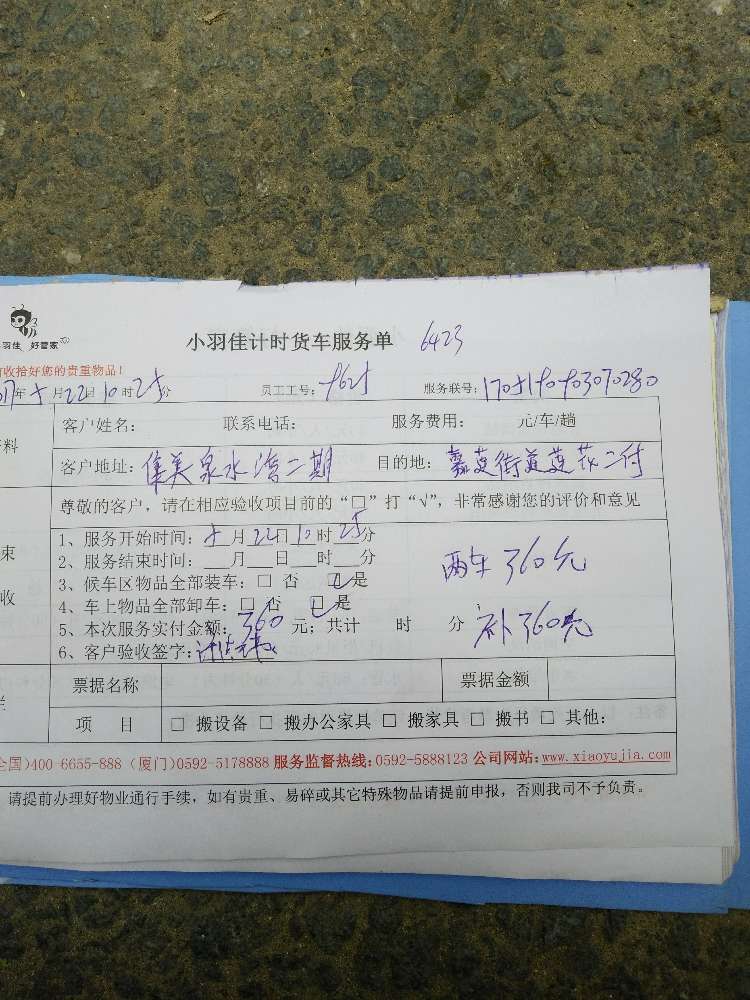 羽佳 好管家
小羽佳计时货车服务单 6423
收拾好您的贵重物品！
年 5月22日10时25分 员工工号： 服务联号：
客户姓名： 联系电话： 服务费用： 元/车/趟
料
客户地址：集美泉水湾二期 目的地：嘉莲街道莲花二付
尊敬的客户，请在相应验收项目前的“□”打“√”，非常感谢您的评价和意见
1、服务开始时间：5月22日10时25分
束
2、服务结束时间：___月___日___时___分
两车360元
3、候车区物品全部装车：□ 否 ☑是
收
4、车上物品全部卸车：□ 否 ☑是
5、本次服务实付金额：360元；共计 时 分
补360元
6、客户验收签字：
票据名称 票据金额
栏
项 目 □ 搬设备 □ 搬办公家具 □ 搬家具 □ 搬书 □ 其他：
全国)400-6655-888 (厦门)0592-5178888 服务监督热线:0592-5888123 公司网站:www.xiaoyujia.com
请提前办理好物业通行手续，如有贵重、易碎或其它特殊物品请提前申报，否则我司不予负责。